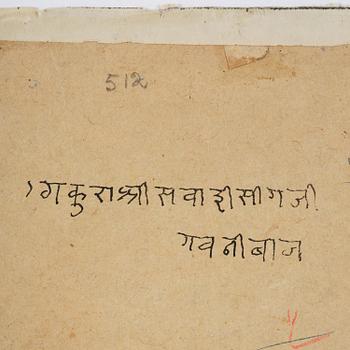 512
ठाकुरा श्री सवाई सीगजी
गवनीबाज